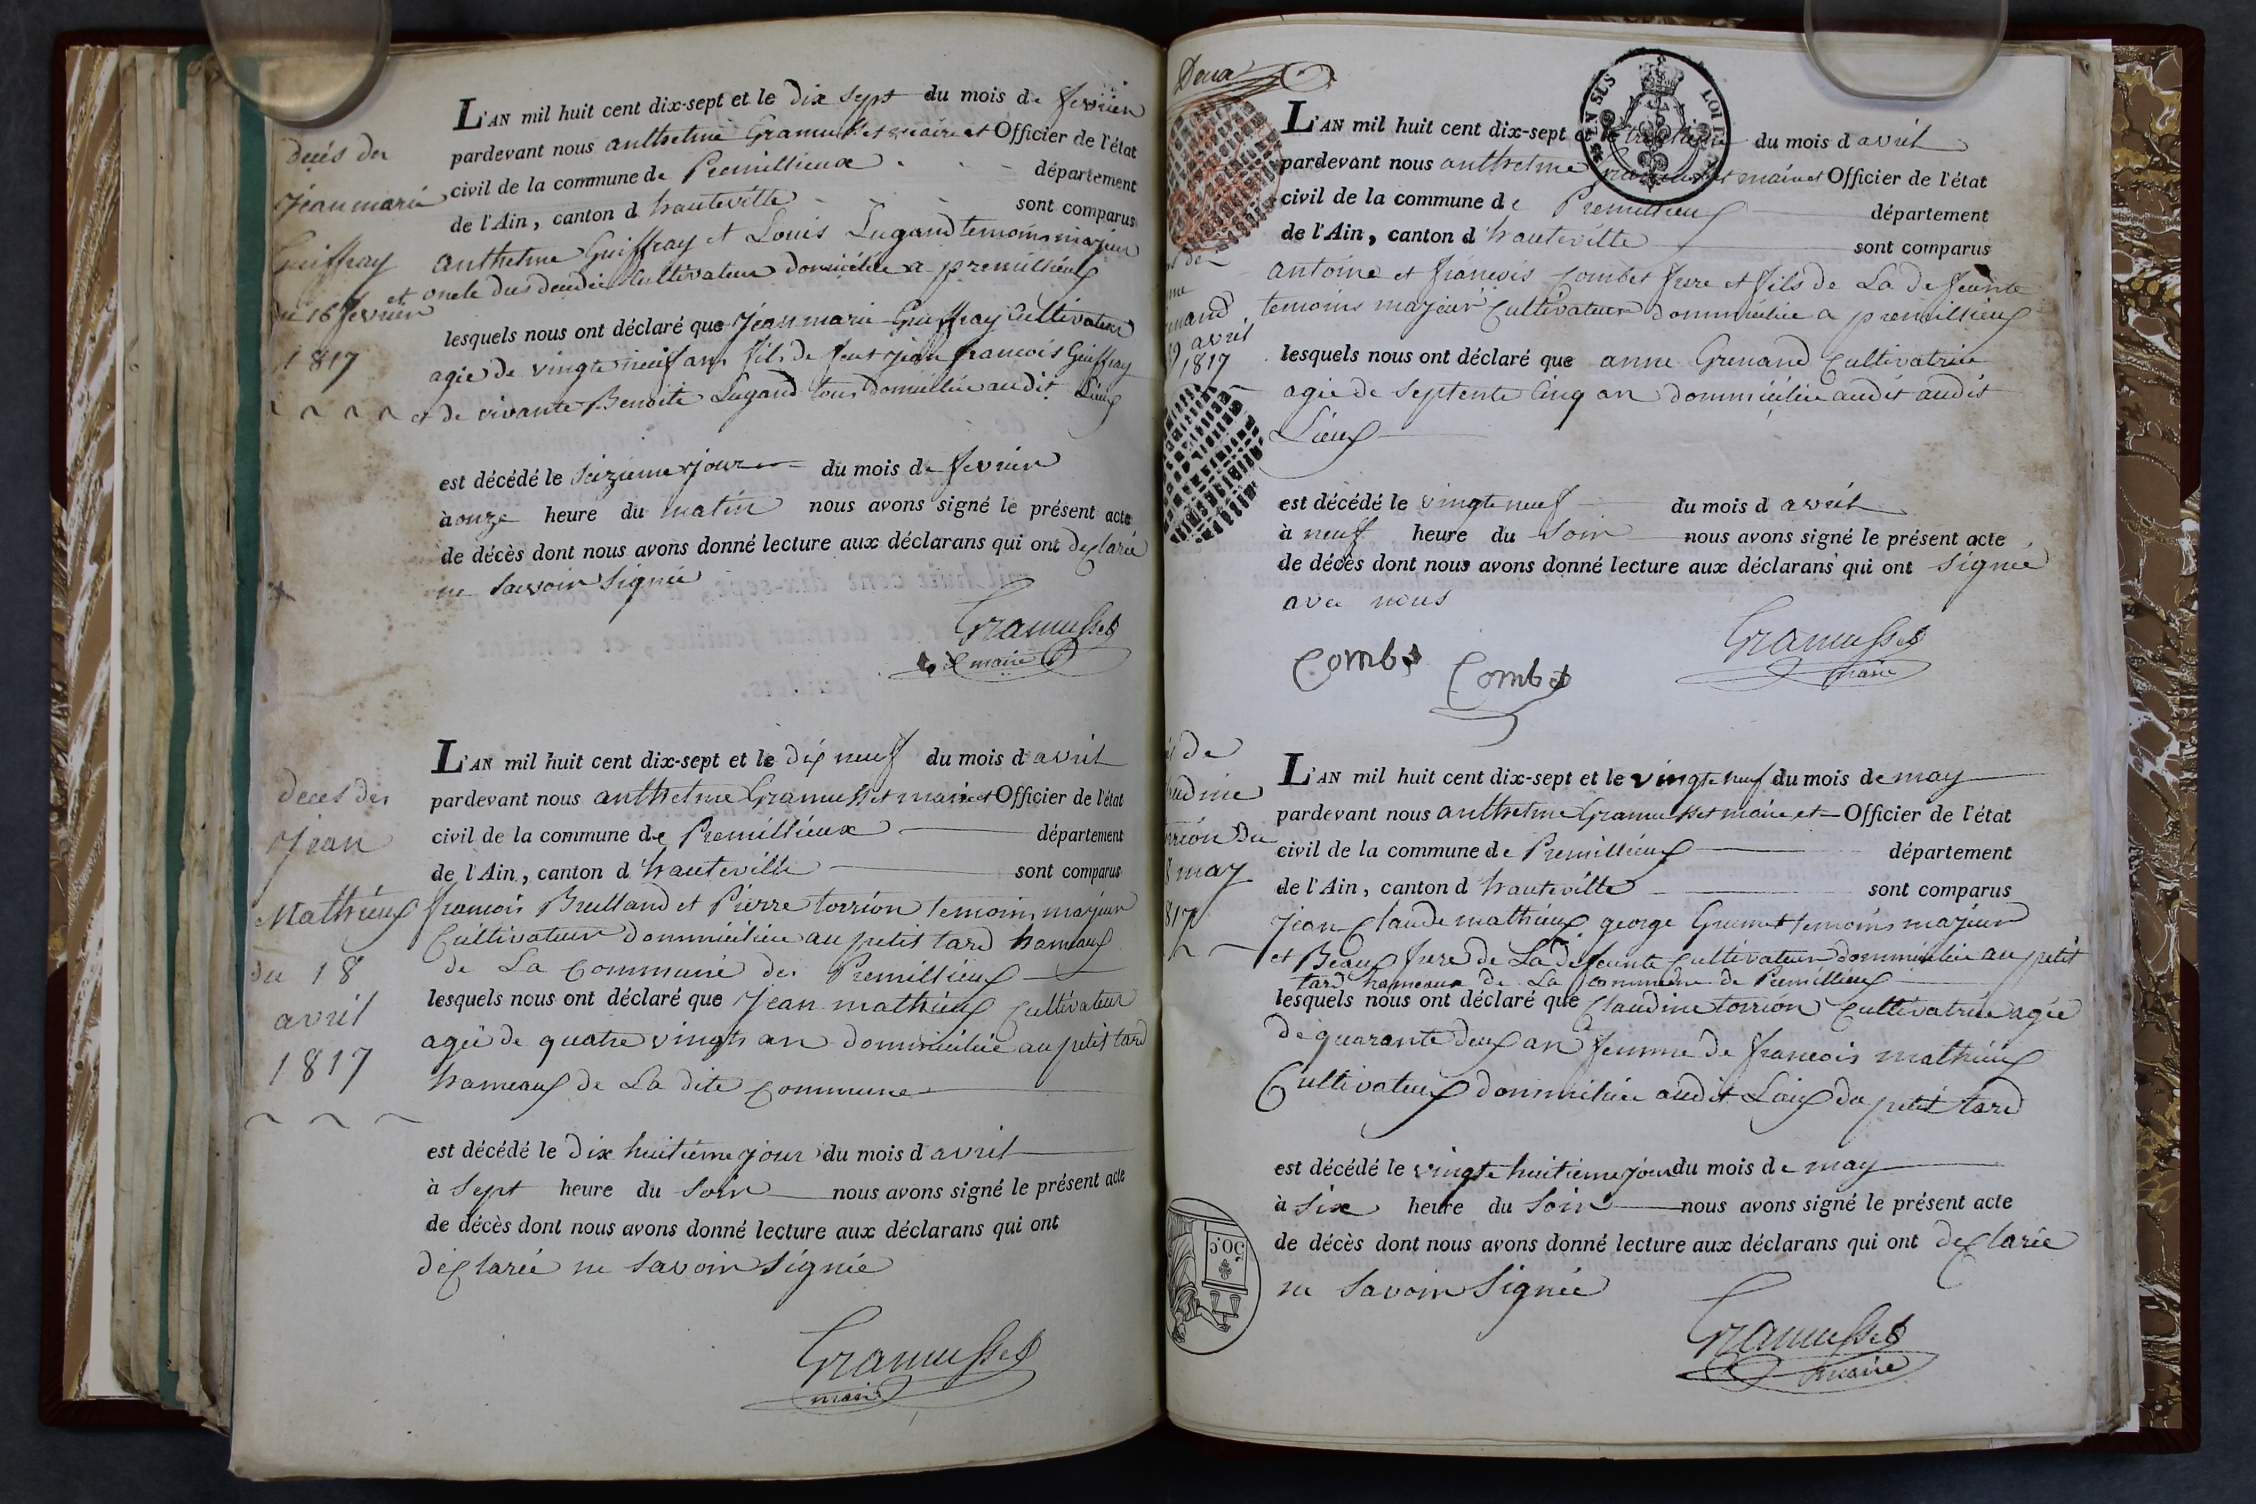 décés de
Jean marie
Guiffray
du 16 fevrier
1817
L'AN mil huit cent dix-sept et le dix sept du mois de fevrier
pardevant nous anthelme Gramusset maire et Officier de l'état
civil de la commune de Premillieux département
de l'Ain, canton d hauteville sont comparus
anthelme Guiffray et Louis Lugand temoins majeur
et oncle du deudit Cultivateur domicilié a premillieux
lesquels nous ont déclaré que Jean marie Guiffray Cultivateur
agié de vingte neuf ans fils de feut Jean francois Guiffray
et de vivante Benoite Lugand tous domicilié audit Lieux
est décédé le seizieme jour du mois de fevrier
à onze heure du matin nous avons signé le présent acte
de décès dont nous avons donné lecture aux déclarans qui ont declarée
ne savoir signée
Gramusset
maire
deces de
Jean
Mathieux
du 18
avril
1817
L'AN mil huit cent dix-sept et le dix neuf du mois d avril
pardevant nous anthelme Gramusset maire et Officier de l'état
civil de la commune de Premillieux département
de l'Ain, canton d hauteville sont comparus
francois Brelland et Pierre torrion temoins majeur
Cultivateur dommicilieu au petit tard hameaux
de La commune de Premillieux
lesquels nous ont déclaré que Jean mathieux Cultivateur
agié de quatre vingts an dommicilieé au petit tard
hameaux de La dite commune
est décédé le dix huitieme jour du mois d avril
à sept heure du soir nous avons signé le présent acte
de décès dont nous avons donné lecture aux déclarans qui ont
declarée ne savoir signée
Gramusset
maire
1817
L'AN mil huit cent dix-sept et le du mois d avril
pardevant nous anthelme Gramusset maire et Officier de l'état
civil de la commune de Premillieux département
de l'Ain, canton d hauteville sont comparus
antoine et francois Combet frere et fils de La defeunte
temoins majeur Cultivateur dommicilié a premillieux
lesquels nous ont déclaré que anne Grenand Cultivatrice
agié de septente Cinq an dommiciliée audit audit
Lieux
est décédé le vingte neuf du mois d avril
à neuf heure du soir nous avons signé le présent acte
de décès dont nous avons donné lecture aux déclarans qui ont signée
avec nous
Combet Combet
Gramusset
maire
L'AN mil huit cent dix-sept et le vingte neuf du mois de may
pardevant nous anthelme Gramusset maire et Officier de l'état
civil de la commune de Premillieux département
de l'Ain, canton d hauteville sont comparus
Jean Claude mathieux george Grumet temoins majeur
et Beaux frere de La defeunte Cultivateur dommicilié au petit
tard hameaux de La commune de Premillieux
lesquels nous ont déclaré que Claudine torrion Cultivatrice agée
de quarante deux an femme de francois mathieux
Cultivateux dommicilié audit Lieux du petit tard
est décédé le vingte huitieme jour du mois de may
à six heure du soir nous avons signé le présent acte
de décès dont nous avons donné lecture aux déclarans qui ont declarée
ne savoir signée
Gramusset
maire